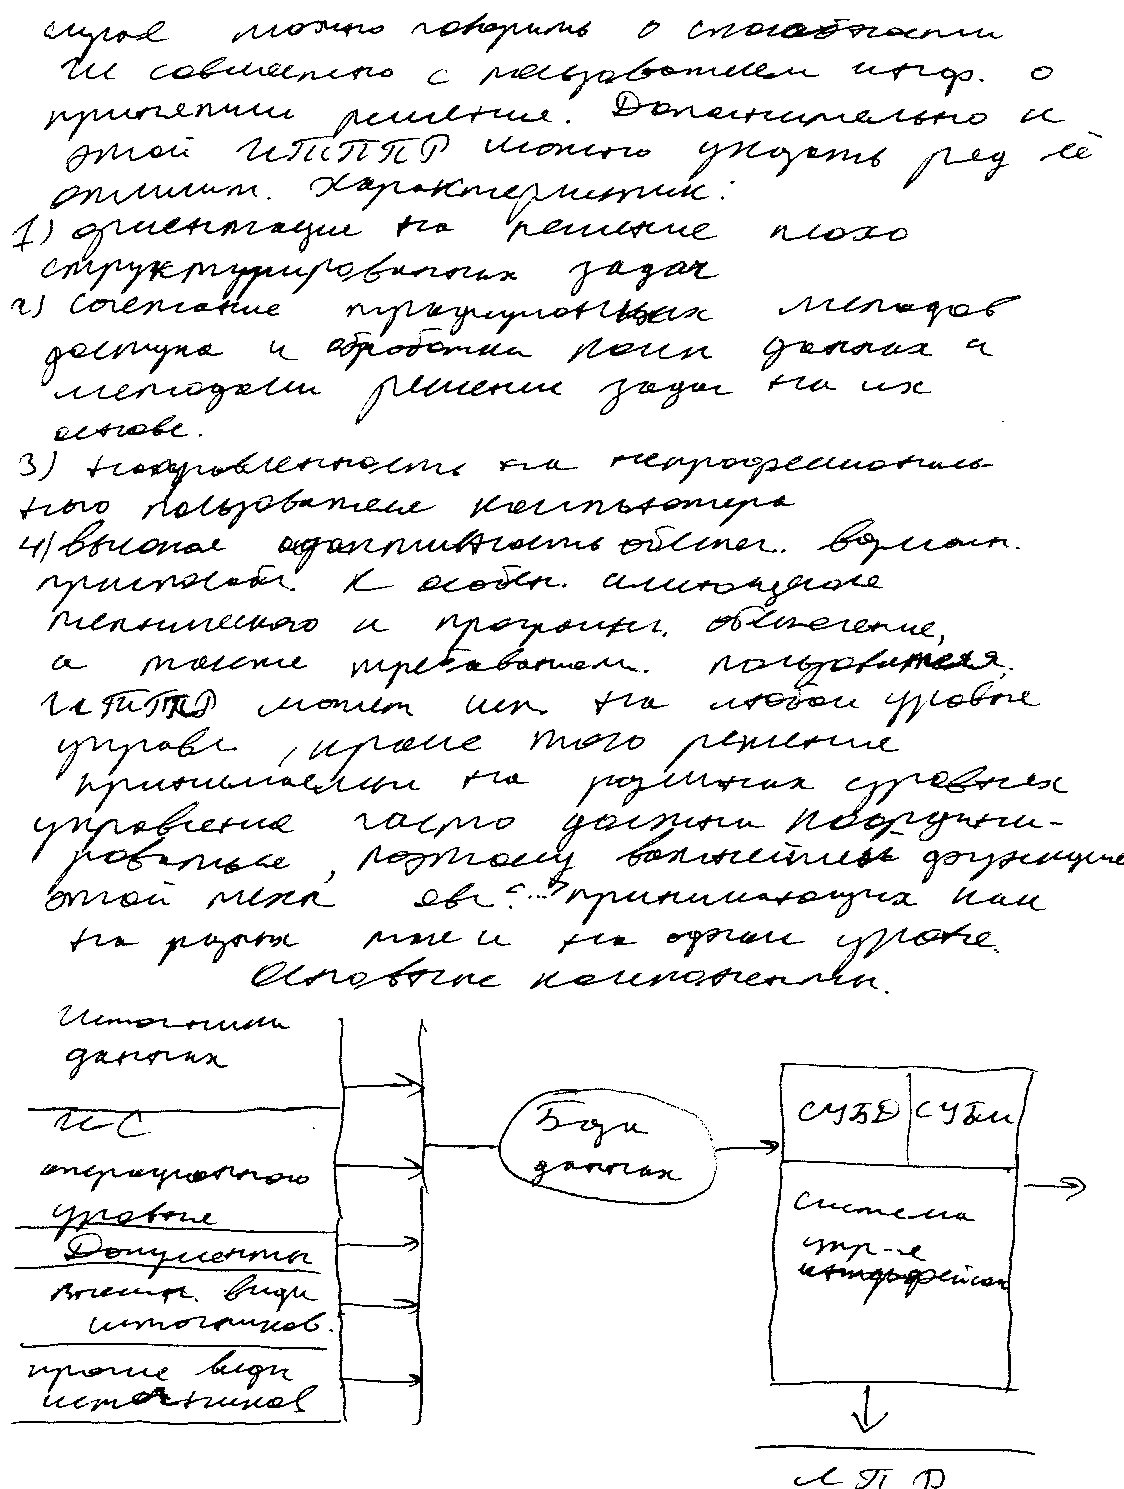 случае можно говорить о способности
ИС совместно с пользователем инф. о
принятии решение. Дополнительно к
этой ИТППР можно указать ряд её
отличит. характеристик:
1) ориентация на решение плохо
структурированных задач
2) сочетание традиционных методов
доступа и обработки комп данных с
методами решение задач на их
основе.
3) направленность на непрофессиональ-
ного пользователя компьютера
4) высокая адаптивность обеспеч. возможн.
приспособ. к особен. имеющегося
технического и програмн. обеспечение,
а также требованием. пользователя.
ИТППР может исп. на любом уровне
управл , кроме того решение
принимаемые на различных уровнях
управление часто должны координи-
роваться , поэтому важнейшей функцией
этой техн явл <...> принимающих как
на разных так и на одном уровне.
Основные компоненты.
Источники
данных
ИС
операционного
уровня
Документы
внешн. виды
источников.
прочие виды
источников
База
данных
СУБД СУБМ
Система
упр-е
интерфейсом
ЛПР